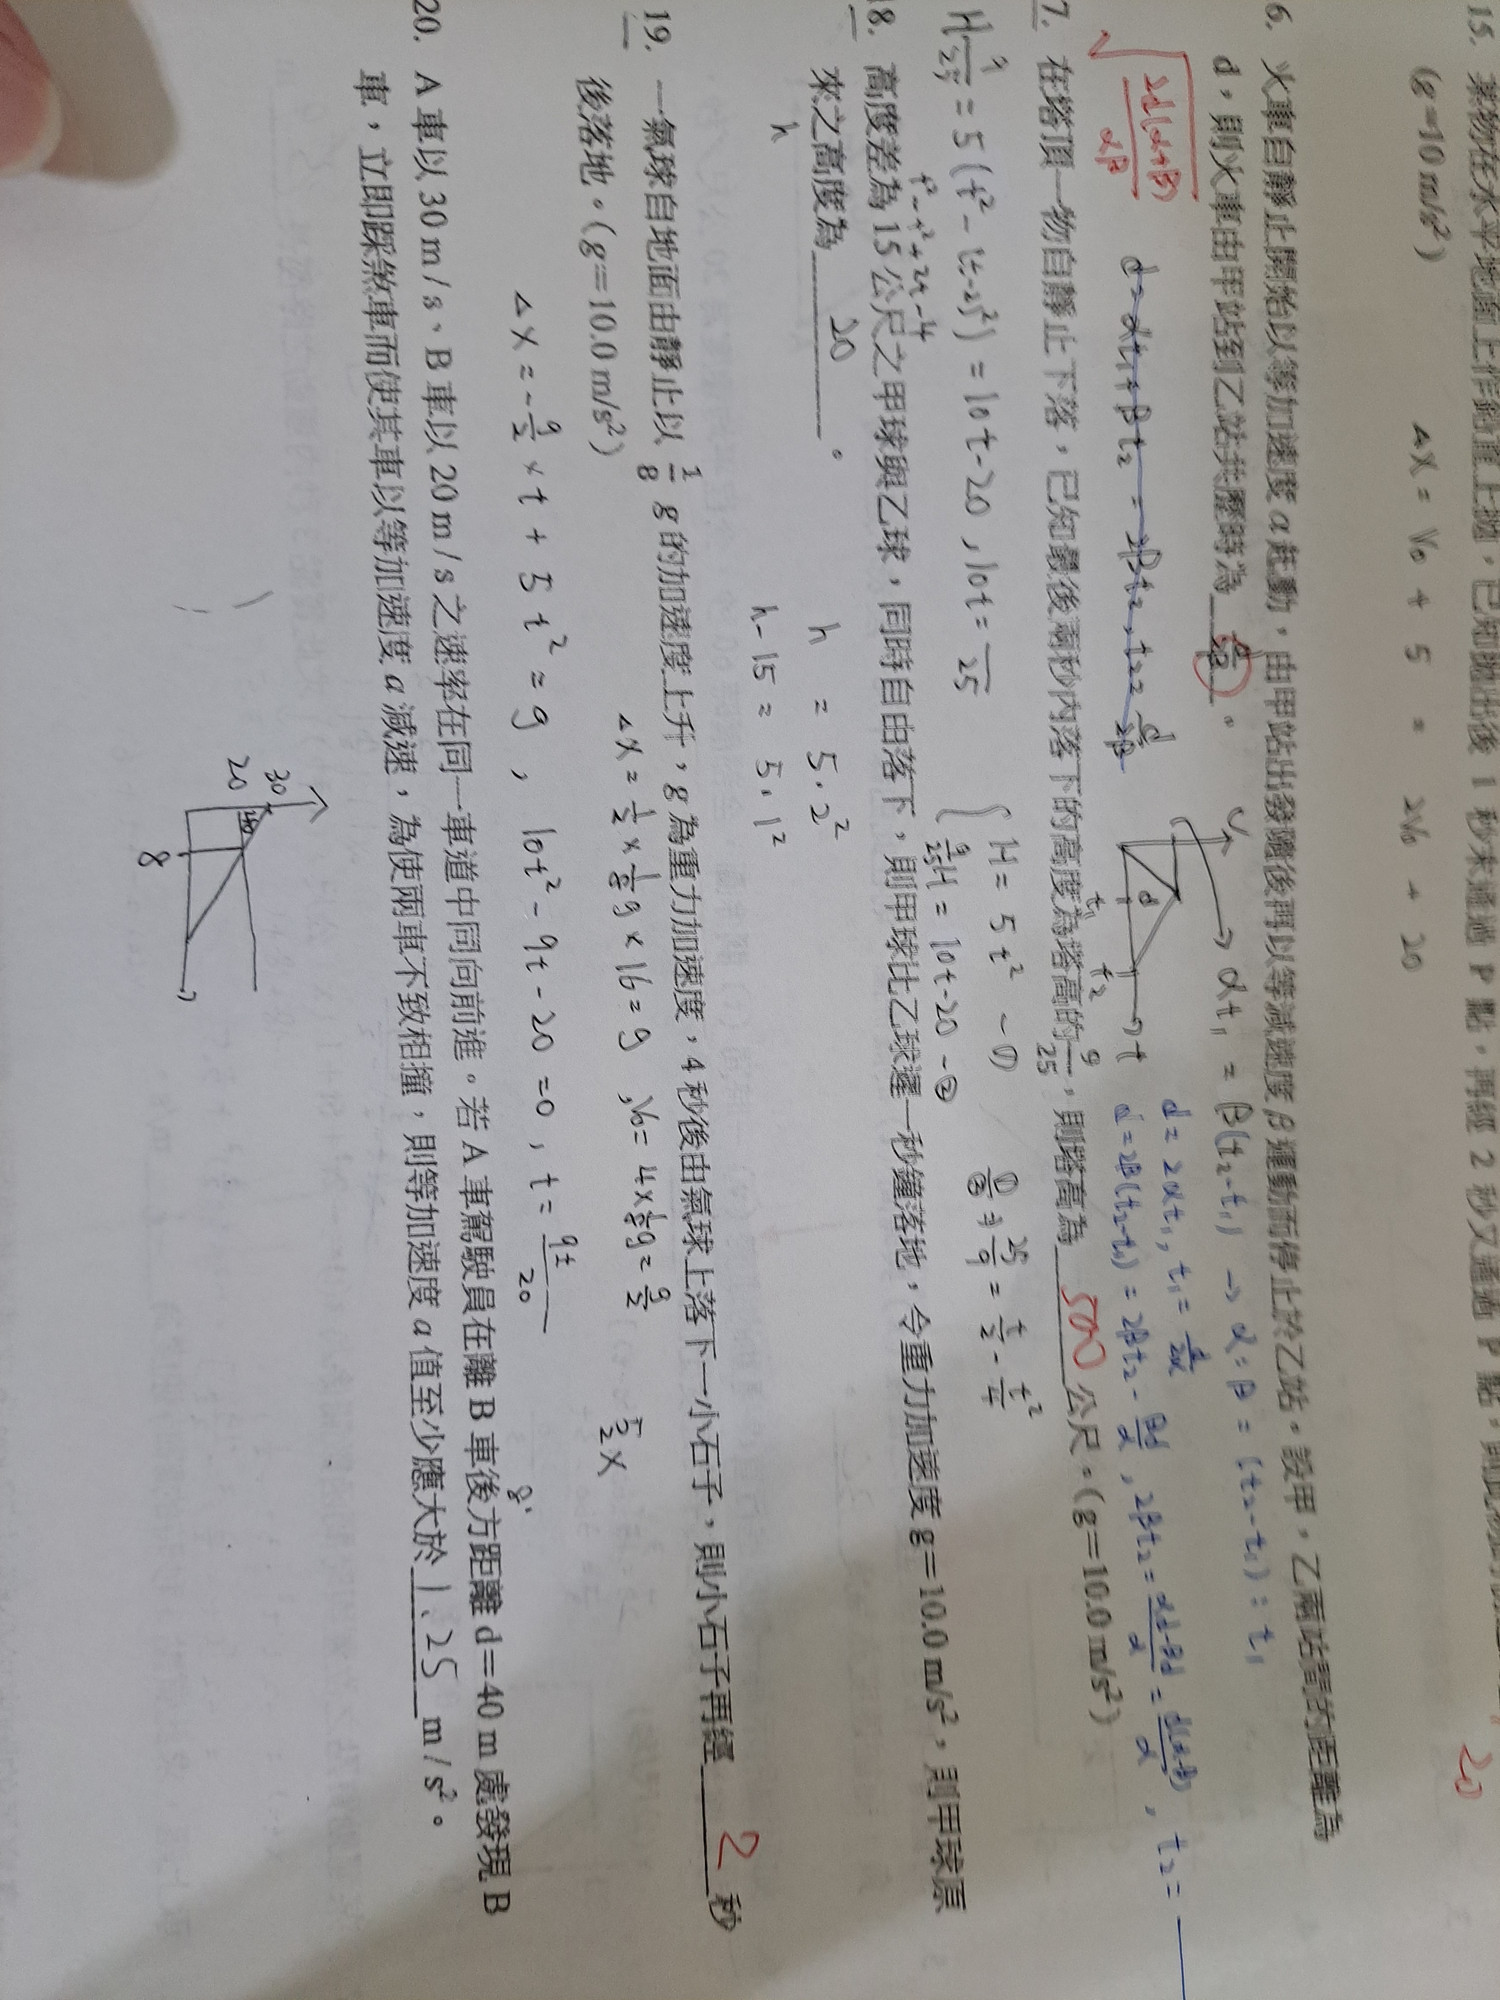 15. 某物在水平地面上作鉛直上拋,已知拋出後 1 秒末通過 P 點,再經 2 秒又通過 P 點,
20
(g=10 m/s²)
ΔX = V₀ + 5 = 2V₀ + 20
6. 火車自靜止開始以等加速度 α 起動,由甲站出發隨後再以等減速度 β 運動而停止於乙站。設甲,乙兩站間的距離為
d,則火車由甲站到乙站共歷時為______。
αt₁ = β(t₂-t₁) → α:β = (t₂-t₁):t₁
√(2d(α+β)/αβ)
d = 2αt₁, t₁ = d/2α
d = 2β(t₂-t₁) = 2βt₂ - βd/α, 2βt₂ =
t₂ =
7. 在塔頂一物自靜止下落,已知最後兩秒內落下的高度為塔高的 9/25,則塔高為 500 公尺。(g=10.0 m/s²)
H 9/25 = 5(t²-(t-2)²) = 10t-20, 10t = /25
t²-t²+2t-4
{ H = 5t² -①
9/25 H = 10t-20 -②
①/② ⇒ 25/9 = t/2 - t²/4
18. 高度差為 15 公尺之甲球與乙球,同時自由落下,則甲球比乙球遲一秒鐘落地,令重力加速度 g=10.0 m/s²,則甲球原
來之高度為 20 。
h
h = 5·2²
h-15 = 5·1²
19. 一氣球自地面由靜止以 1/8 g 的加速度上升,g 為重力加速度,4 秒後由氣球上落下一小石子,則小石子再經 2 秒
後落地。(g=10.0 m/s²)
ΔX = 1/2 × 1/8 g × 16 = g, V₀ = 4×1/8 g = g/2
5/2 X
ΔX = -g/2 × t + 5t² = g, 10t² - gt - 20 = 0, t = g± /20
20. A 車以 30 m/s、B 車以 20 m/s 之速率在同一車道中同向前進。若 A 車駕駛員在離 B 車後方距離 d=40 m 處發現 B
車,立即踩煞車而使其車以等加速度 a 減速,為使兩車不致相撞,則等加速度 a 值至少應大於 1.25 m/s²。
30
20
40
8